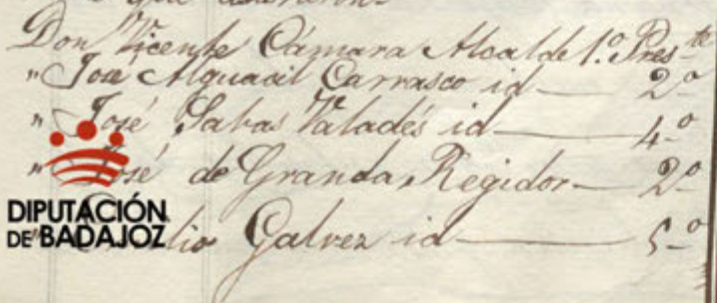 Don Vicente Cámara Alcalde 1.º Pres.te
" José Alguacil Carrasco id — 2º
" José Sabas Valadés id — 4.º
" José de Granda, Regidor — 2º
" lio Galvez id — 5.º
DIPUTACIÓN
DE BADAJOZ